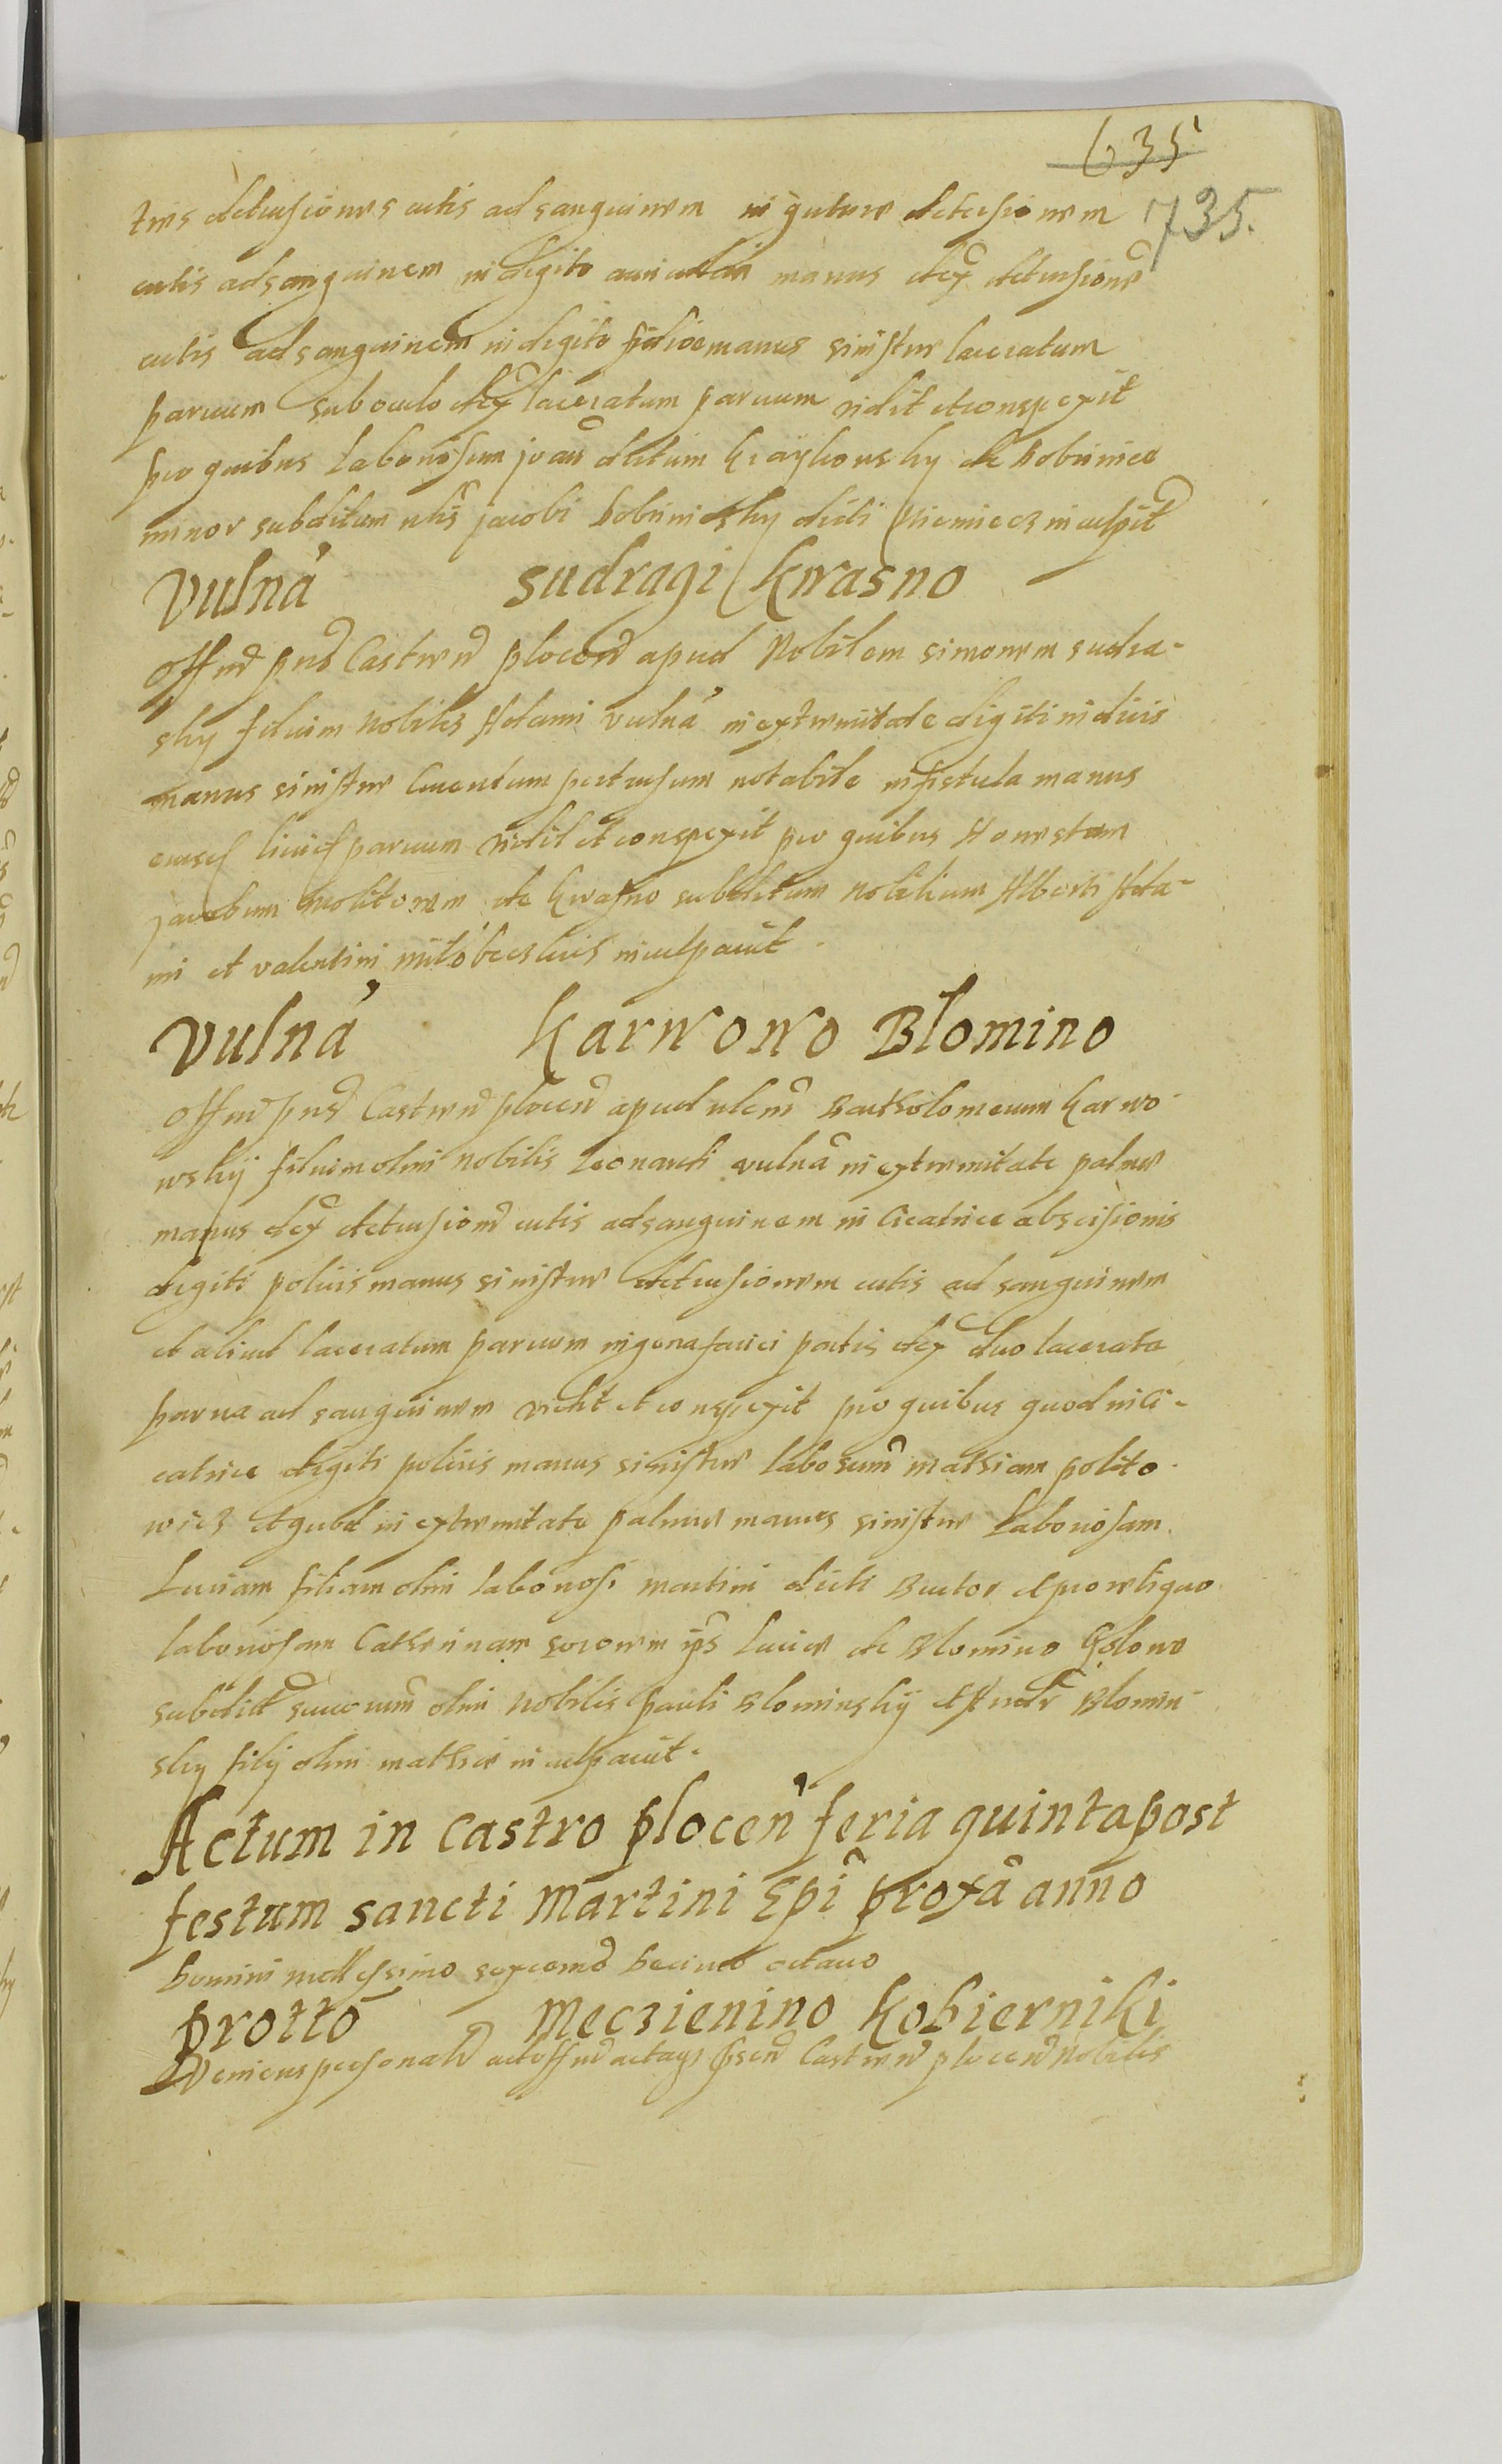 635
735.
tres detrusiones cutis ad sanguinem in guture detrusionem
cutis ad sanguinem in digito auriculari manus dex detrusione
cutis ad sanguinem in digito manus sinistre laceratum
paruum sub oculo dex laceratum paruum vidit et conspexit
pro quibus laboriosum joan dictum de Bobrinice
minor subditum jacobi dicti Niemiecz inculpit
Vulna Sudragi Krasno
Offm pns Castren plocen apud Nobilem simonem sudra-
sky filium nobilis Adami vulna in extremitate digiti indicis
manus sinistre cruentum pertusum notabile in fistula manus
eiusd liuid paruum vidit et conspexit pro quibus Honestum
jacobum Molitorem de Krasno subditum nobilium Alberti Ada-
mi et valentini inculpauit.
Vulna Karwowo Blomino
Offm pns Castren plocen apud Bartholomeum Karwo-
wskij filium olim nobilis Leonardi vulna in extremitate palme
manus dex detrusione cutis ad sanguinem in cicatrice abscisionis
digiti policis manus sinistre detrusionem cutis ad sanguinem
et aliud laceratum paruum in gena faciei partis dex duo lacerata
parua ad sanguinem vidit et conspexit pro quibus quod in ci-
catrice digiti policis manus sinistre labosum mathiam polito-
wicz et quod in extremitate palme manus sinistre laboriosam
Luciam filiam olim laboriosi martini dicti et pro reliquo
laboriosam Catherinam sororem ips Lucie de Blomino
subdit olim nobilis pauli Blominskij et Andr Blomin-
sky filij olim mathie inculpauit.
Actum in Castro plocen feria quinta post
festum sancti Martini Epi proxa anno
Domini millesimo sexcento decimo octauo
Protto Meczienino Kobierniki
Veniens personalr ad offm actaqs Castren plocen Nobilis